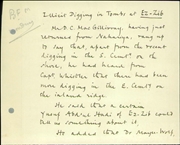 Illicit Digging in Tombs at Ez-Zib
Mr D. C. MacGillivray, having just
returned from Nahariya, rang up
to say that, apart from the recent
digging in the S. Cemt? on the
shore, he had heard from
Capt. Wheeler that there had been
more digging in the E. Cemt? on
the inland ridge.
He said that a certain
Yusuf Abdul Hadi of Ez-Zib could
tell us something about it.
He added that Dr Mayer